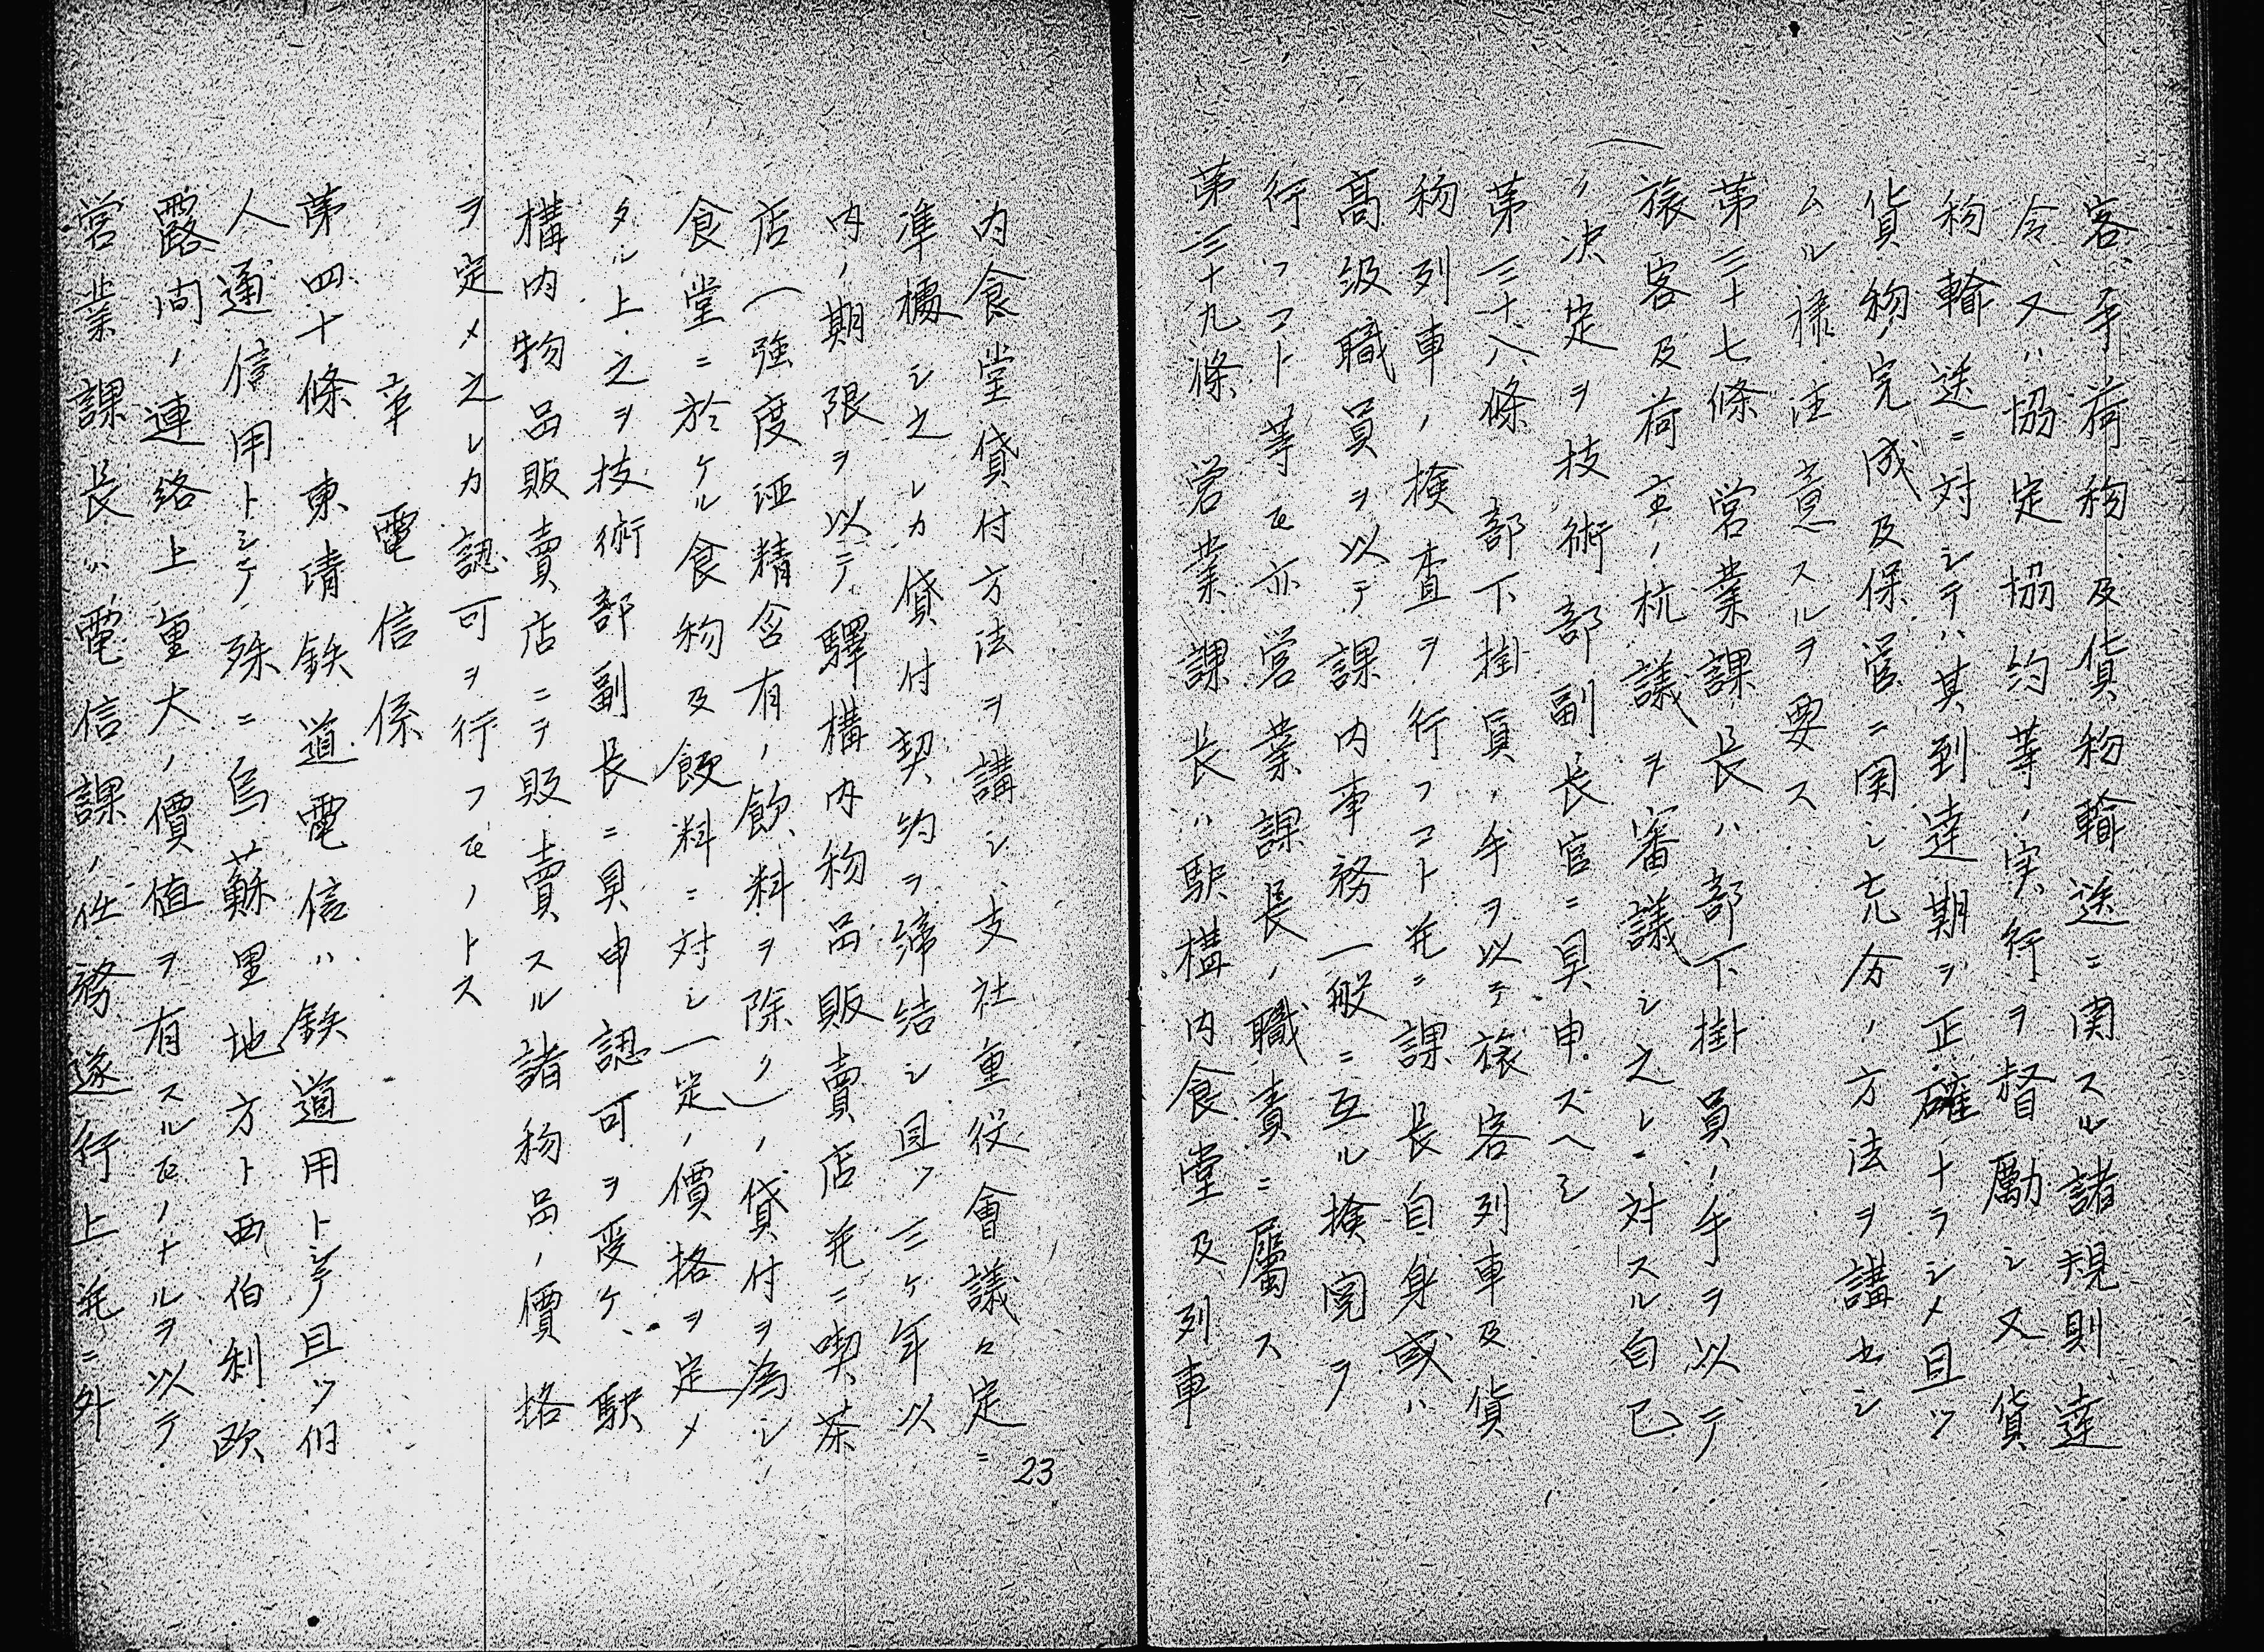 客、手荷物及貨物輸送ニ関スル諸規則達
令又ハ協定協約等ノ実行ヲ督励シ又貨
物輸送ニ対シテハ其到達期ヲ正確ナラシメ且ツ
貨物ノ完成及保管ニ関シ充分ノ方法ヲ講セシ
ムル様注意スルヲ要ス
第三十七條 営業課長ハ部下掛員ノ手ヲ以テ
旅客及荷主ノ抗議ヲ審議シ之レニ対スル自己
ノ決定ヲ技術部副長官ニ具申スヘシ
第三十八條 部下掛員ノ手ヲ以テ旅客列車及貨
物列車ノ検査ヲ行フコト並ニ課長自身或ハ
高級職員ヲ以テ課内事務一般ニ亙ル検閲ヲ
行フコト等モ亦営業課長ノ職責ニ属ス
第三十九條 営業課長ハ駅構内食堂及列車
内食堂貸付方法ヲ講シ支社重役會議々定ニ
準據シ之レカ貸付契約ヲ締結シ且ツ三ケ年以
内ノ期限ヲ以テ驛構内物品販賣店並ニ喫茶
店(強度酒精含有ノ飲料ヲ除ク)ノ貸付ヲ為シ
食堂ニ於ケル食物及飲料ニ対シ一定ノ價格ヲ定メ
タル上之ヲ技術部副長ニ具申認可ヲ受ケ駅
構内物品販賣店ニテ販賣スル諸物品ノ價格
ヲ定メ之レカ認可ヲ行フモノトス
章 電信係
第四十條 東清鉄道電信ハ鉄道用トシテ且ツ個
人通信用トシテ殊ニ烏蘇里地方ト西伯利欧
露間ノ連絡上重大ノ價値ヲ有スルモノナルヲ以テ
営業課長ハ電信課ノ任務遂行上並ニ外
23